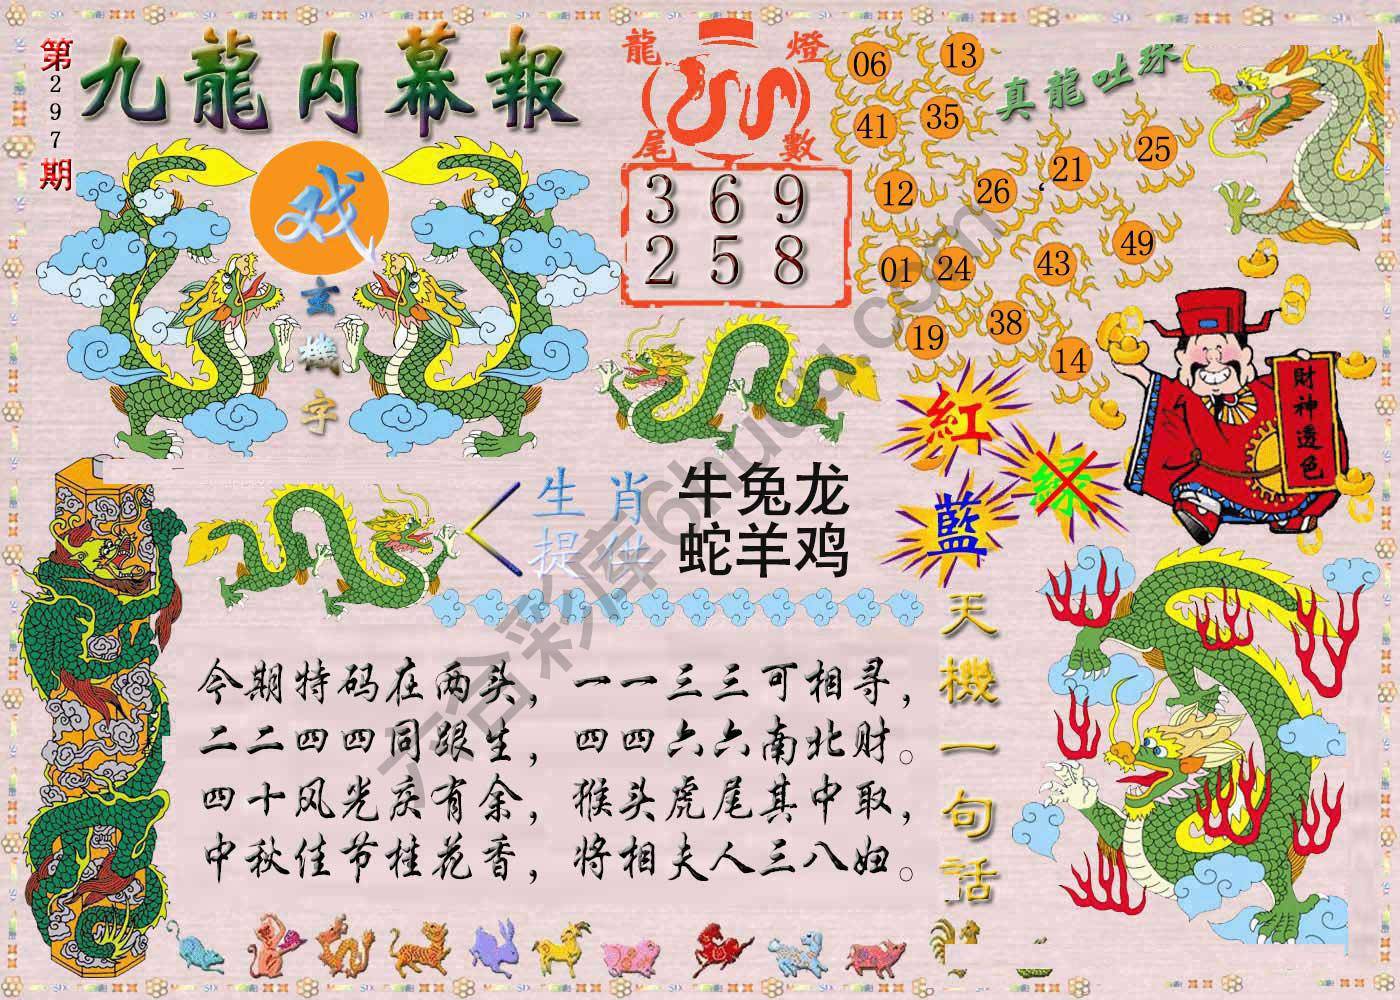 第297期
九龍内幕報
戏
玄機字
龍燈
尾數
3 6 9
2 5 8
真龍吐珠
06 13
41 35
12 26 21 25
01 24 43 49
19 38 14
紅
绿
藍
財神透色
生肖
提供
牛兔龙
蛇羊鸡
天機一句話
今期特码在两头，一一三三可相寻，
二二四四同跟生，四四六六南北财。
四十风光庆有余，猴头虎尾其中取，
中秋佳节桂花香，将相夫人三八妞。
六合彩库6hucu.com